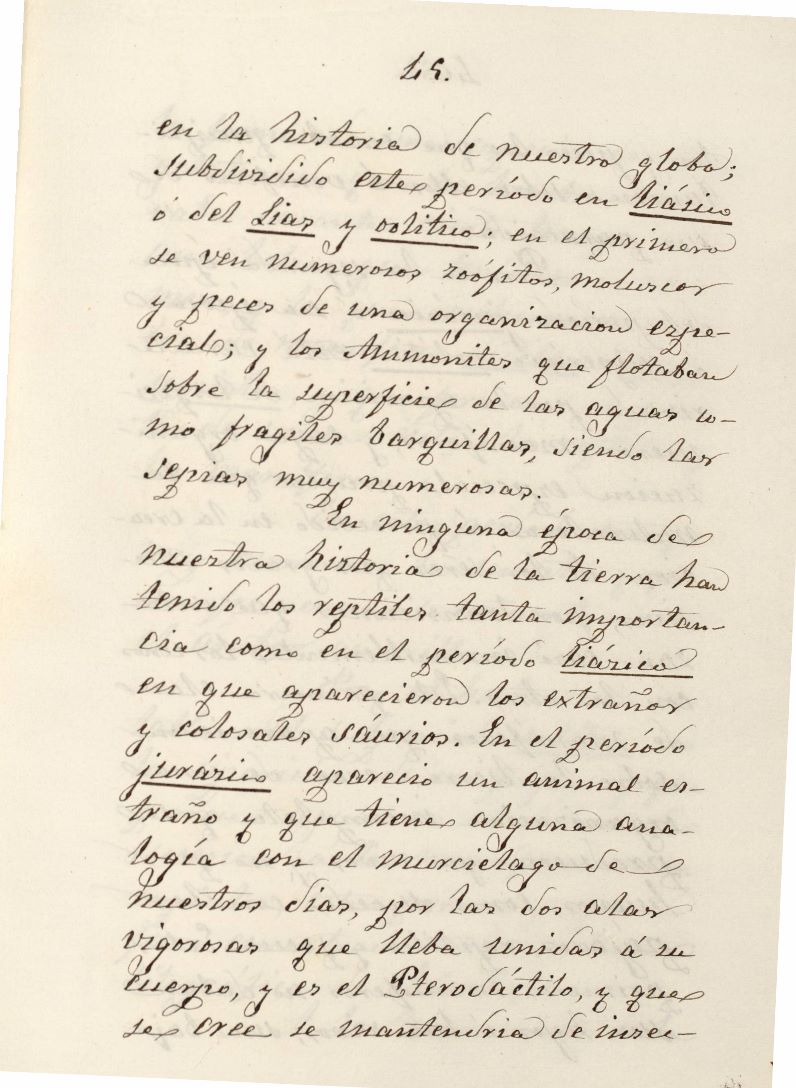 45.
en la historia de nuestro globo;
subdividido este período en liásico
ó del Lias y oolitico; en el primero
se ven numerosos zoófitos, moluscos
y peces de una organizacion espe-
cial; y los Ammonites que flotaban
sobre la superficie de las aguas co-
mo fragiles barquillas, siendo las
sepias muy numerosas.
En ninguna época de
nuestra historia de la tierra han
tenido los reptiles tanta importan-
cia como en el período liásico
en que aparecieron los extraños
y colosales sáurios. En el período
jurásico aparecio un animal es-
traño y que tiene alguna ana-
logía con el murcielago de
nuestros dias, por las dos alas
vigorosas que lleba unidas á su
cuerpo, y es el Pterodáctilo, y que
se cree se mantendria de insec-